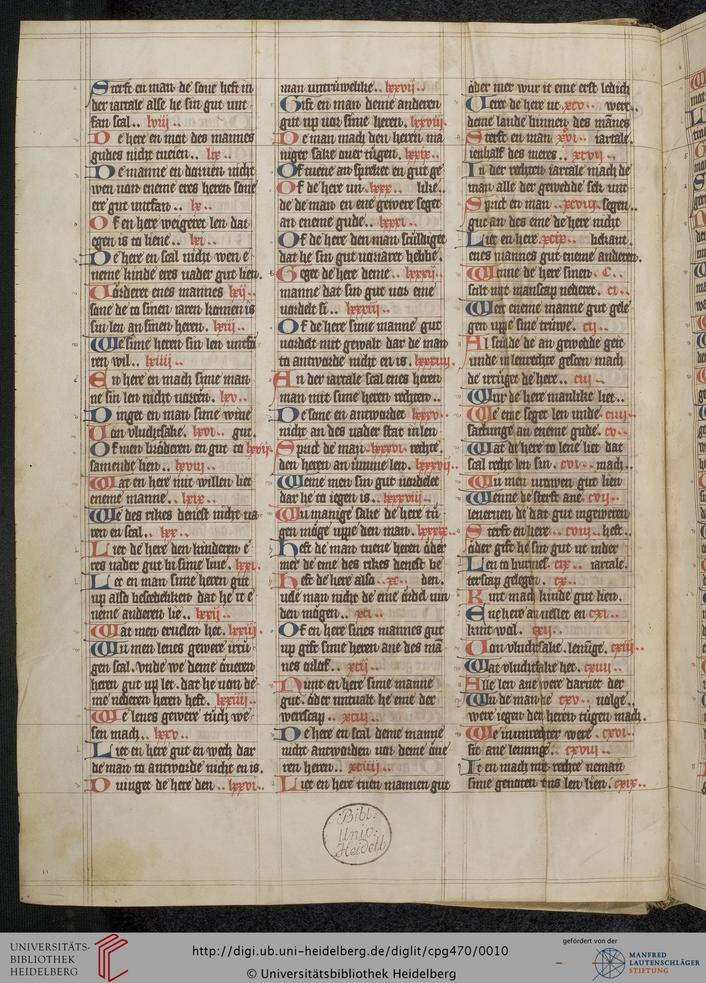 Sterft en man de sone heft in
der iartale alse he sin gut unt
fan scal.. lviij..
De here en mot des mannes
gudes nicht lix..
De manne en dorven nicht
wen von eneme eres heren sone
ere gut untfan.. lx..
Of en here weigeret len dat
egen is to liene.. lxi..
De here en scal nicht wen e
neme kinde eres vader gut lien.
Vorderet enes mannes lxij..
sone de to sinen iaren komen is
sin len an sinen heren. lxiij..
We sime heren sin len untfo
ren wil.. lxiiij..
En here en mach sime man
ne sin len nicht lxv..
Dinget en man sime wive
Von vluchtsake. lxvi.. gut.
Of men bruderen en gut to lxvij.
samende lien.. lxviij..
Wat en here mit willen liet
eneme manne.. lxix..
We des rikes denest nicht va
ren en scal.. lxx..
Liet de here den kinderen e
res vader gut bi sime live. lxxi.
Let en man sime heren gut
up also bescedeliken dat he it e
neme anderen lie.. lxxij..
Wat men ervelen het. lxxiij.
Wu men lenes gewere irtu
gen scal. vnde we deme overen
heren gut up let. dat he von de
me nederen heren heft. lxxiiij.
We lenes gewere tuch we
sen mach.. lxxv..
Liet en here gut en wech dar
de man to antworde nicht en is.
Dvinget de here den.. lxxvi..
man untruwelike.. lxxvij..
Gift en man deme anderen
gut up vor sime heren. lxxviij.
De man mach den heren ma
niger sake over tugen. lxxix..
Of tuene an spreket en gut ge
Of de here un. lxxx.. like..
de de man en ene gewere seget
an eneme gude.. lxxxi..
Of de here den man sculdiget
dat he sin gut vorsaret hebbe.
Seget de here deme.. lxxxij..
manne dat sin gut vor eme
vordelt si.. lxxxiij..
Of de here sime manne gut
vordelt mit gewalt dar de man
to antworde nicht en is. lxxxiiij.
An der iartale scal enes heren
man mit sime heren rechten..
De sone en antwordet lxxxv..
nicht an des vader stat in len
Sprict de man. lxxxvi. rechte.
den heren an umme len. lxxxvij..
Weme men sin gut vordelet
dar he to iegen is.. lxxxviij..
Wu manige sake de here tu
gen moge uppe den man. lxxxix..
Heft de man tuene heren oder
mer de eme des rikes denest be
Heft de here also.. xc.. den.
vele man nicht de eme ordel vin
den mogen.. xci..
Of en here sines mannes gut
up gift sime heren ane des ma
nes orlof.. xcij..
Nimt en here sime manne
gut. oder untualt he eme der
werscap.. xciij..
De here en scal deme manne
nicht antworden vor deme ove
ren heren.. xciiij..
Liet en here tuen mannen gut
oder mer wur it eme erst ledich
Veret de here ut xcv.. wert..
deme lande binnen des mannes
Sterft en man xcvi.. iartale.
ienhalf des meres.. xcvij..
In der rechten iartale mach de
man alle der gewedde sek unt
Sprict en man .. xcviij. segen..
gut an des eme de here nicht
Liet en here. xcix.. bekant.
enes mannes gut eneme anderen.
Wenne de here sinen. c..
scilt mit manscap nederet. ci..
Wert eneme manne gut gele
gen uppe sine truwe. cij..
Al sculde de an gewedde geit
unde in lenrechte gescen mach
de irtuget de here.. ciij..
Wur de here manlike liet..
We eme seget len unde. ciiij..
satinge an eneme gude. cv..
Wat de here to lene liet dat
scal recht len sin. cvi.. mach..
Wu men vrowen gut lien
Wenne de sterft ane. cvij..
lenerven de dat gut ingeweren
Sterft en here.. cviij.. heft..
oder gift he sin gut ut under
Len to burmes. cix.. iartale.
terscap gelegen. cx..
Kint mach kinde gut lien.
Ene here an vellet en cxi..
kint wol. cxij..
Von vluchtsake. lenuge. cxiij..
Wat vluchtsake het. cxiiij..
Alle len ane were darvet der
Wu de man de cxv.. volge..
were iegen den heren tugen mach.
We inunrechter were. cxvi..
sit ane leninge.. cxviij..
It en mach mit rechte neman
sime genoten tins len lien. cxix..
Bibl:
Univ:
Heidelb
UNIVERSITÄTS-
BIBLIOTHEK
HEIDELBERG
http://digi.ub.uni-heidelberg.de/diglit/cpg470/0010
© Universitätsbibliothek Heidelberg
gefördert von der
MANFRED
LAUTENSCHLÄGER
STIFTUNG